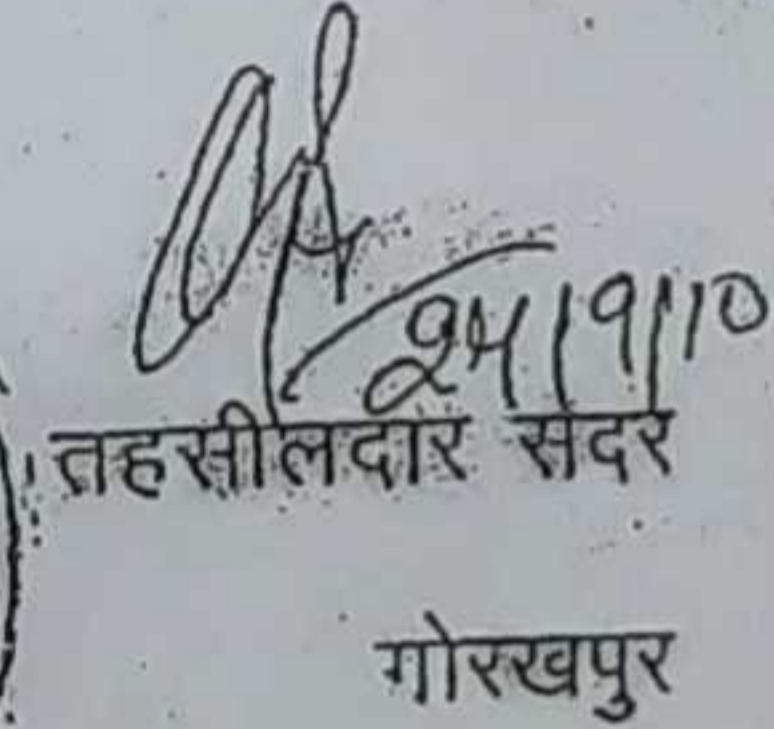 24/9/10
तहसीलदार सदर
गोरखपुर